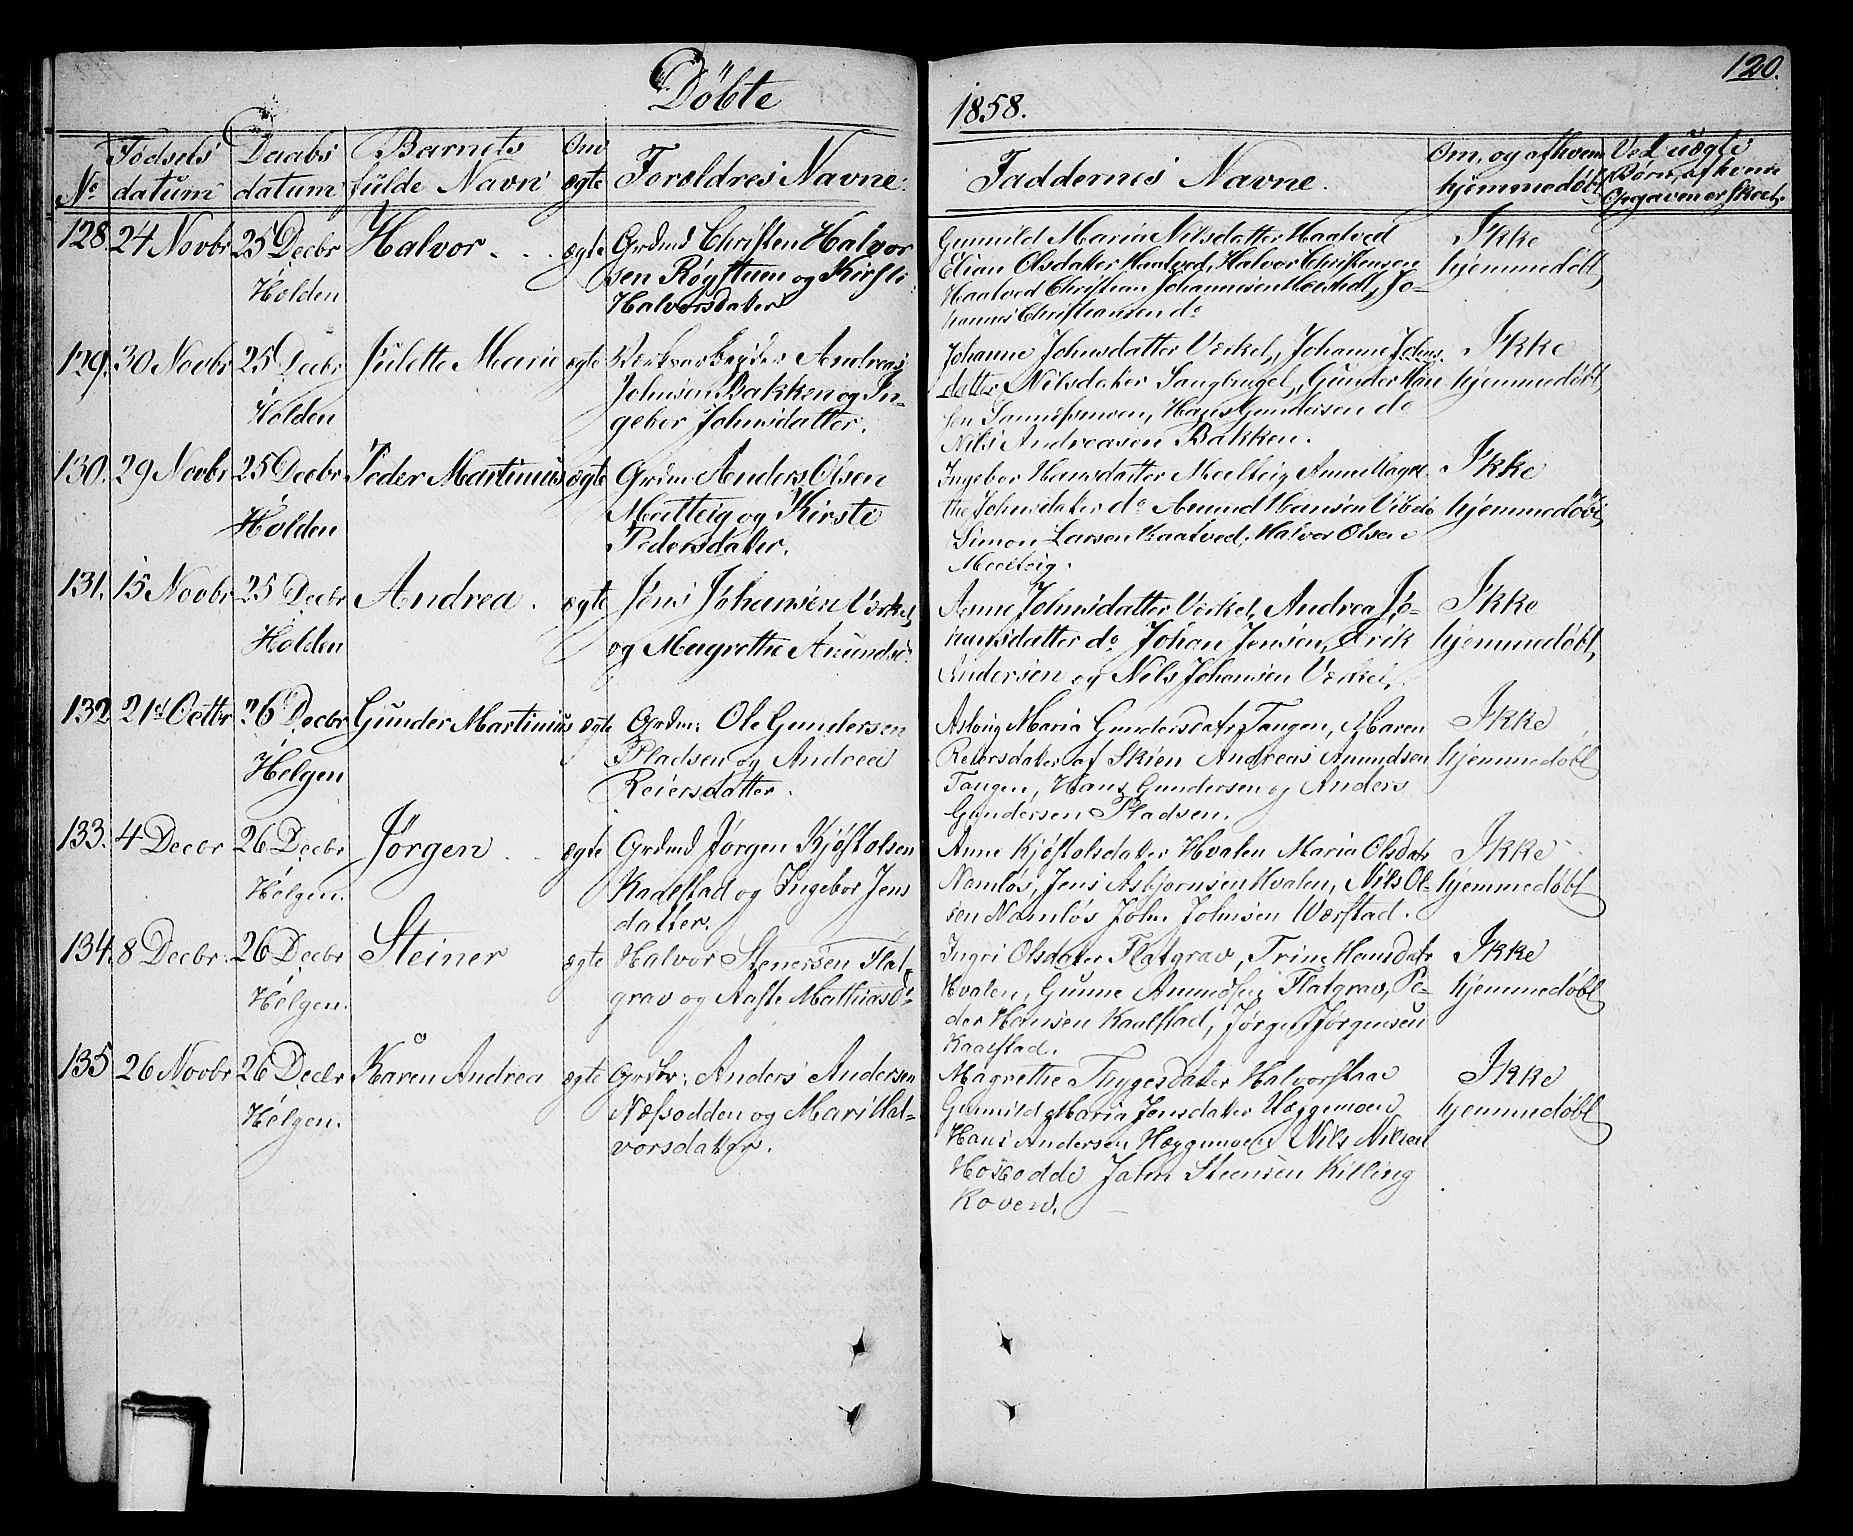 Döbte
1858.
120.
No
Födsels
datum
Daabs
datum
Barnets
fulde Navn
Om
ægte
Forældres Navne.
Faddernes Navne.
Om, og af hvem
hjemmedøbt
Ved uægte
Børn, af hvem
Opgaven er skeet.
128 24 Novbr 25 Decbr Halvor . . . ægte
Holden
Grdmd Christen Halvor
sen Røgttum og Kirsti
Halvorsdatter
Gunnild Maria Nilsdatter Haatved
Elian Olsdatter Haatved, Halvor Christensen
Haatved Christian Johannesen Jo-
hannes Christiansen do
Ikke
hjemmedøbt,
129. 30 Novbr 25 Decbr Julette Marie ægte
Holden
Værksarbeider Andreas
Johnsen Bakken og In-
gebor Johnsdatter.
Johanne Johnsdatter Verket, Johanne Johns.
datter Nilsdatter Langkugel, Gunder Han
sen Hans Gundersen do
Nils Andreasen Bakken.
Ikke
hjemmedøbt,
130. 29 Novbr 25 Decbr Peder Martinius ægte
Holden
Grdm: Anders Olsen
Meelteig og Kirsti
Pedersdatter.
Ingebor Hansdatter Meelteig Anne Magre
the Johnsdatter do Amund Hansen Vibeto
Simon Larsen Haatved, Halvor Olsen
Meelteig.
Ikke
hjemmedøbt,
131. 15 Novbr 25 Decbr Andrea . ægte
Holden
Jens Johansen Verket,
og Magrethe Amundsd:
Anne Johnsdatter Verket, Andrea Jo-
hansdatter do Johan Jensen, Erik
Andersen og Nils Johansen Verket,
Ikke
hjemmedøbt,
132 21de Octbr 26 Decbr Gunder Martinius ægte
Helgen
Grdm: Ole Gundersen
Pladsen og Andrea
Reiersdatter.
Aslaug Maria Gundersdatr Tangen, Maren
Reiersdatter af Skien Andreas Amundsen
Tangen, Hans Gundersen og Anders
Gundersen Pladsen.
Ikke
hjemmedøbt
133. 4 Decbr 26 Decbr Jörgen . . ægte
Helgen.
Grdmd Jörgen Kjöstolsen
Kaasstad og Ingebor Jens
datter.
Anne Kjöstolsdatter Hvalen Maria Olsdatr
Namlös, Jens Asbjornsen Hvalen, Nils Ol-
sen Namlös John Johnsen Værstad.
Ikke
hjemmedøbt
134. 8 Decbr. 26 Decbr Steiner ægte
Helgen.
Halvor Stenersen Flat-
grav og Aaste Mathiasd:
Ingri Olsdatter Flatgrav, Trine Hansdatr
Hvalen, Gunne Amundsen Flatgrav, Pe-
der Hansen Kaalstad, Jörgen Jörgensen
Kaalstad.
Ikke
hjemmedøbt
135 26 Novbr 26 Decbr Karen Andrea ægte
Helgen.
Grdbr: Anders Andersen
Næsodden og Mari Hal-
vorsdatter.
Magrethe Thygesdatter Halvorstaa
Gunnild Maria Jensdatter Hæggemoen
Hans Andersen Hæggemoen Nils Nilsen
Hosodde John Steensen Killing
Koven.
Ikke
hjemmedøbt